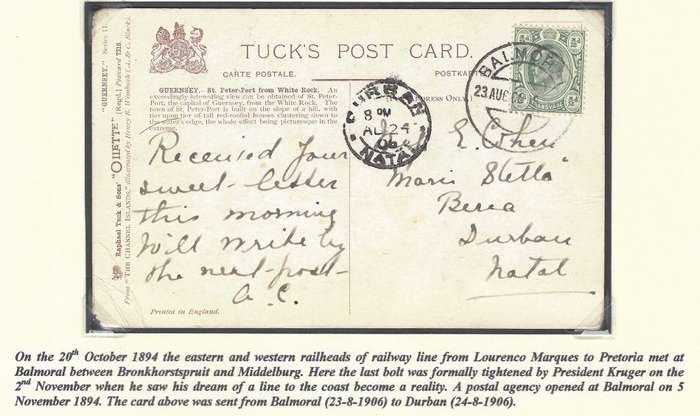 TUCK'S POST CARD.
CARTE POSTALE.
POSTKAR
GUERNSEY.— St. Peter-Port from White Rock. An
exceedingly interesting view can be obtained of St. Peter-
Port, the capital of Guernsey, from the White Rock. The
town of St. Peter-Port is built on the slope of a hill, with
tier upon tier of tall red-roofed houses clustering down to
the water's edge, the whole effect being picturesque in the
extreme.
RESS ONLY.)
Raphael Tuck & Sons' "OILETTE" [Regd.] Postcard 7218
"GUERNSEY." Series II.
BALMOR
23 AUG 06
DURBAN
8 PM
AU 24
06
NATAL
Received your
sweet letter
this morning
Will write by
the next post—
A. C.
E. Cohen
"Maris Stella"
Berea
Durban
Natal
Printed in England.
On the 20th October 1894 the eastern and western railheads of railway line from Lourenco Marques to Pretoria met at
Balmoral between Bronkhorstspruit and Middelburg. Here the last bolt was formally tightened by President Kruger on the
2nd November when he saw his dream of a line to the coast become a reality. A postal agency opened at Balmoral on 5
November 1894. The card above was sent from Balmoral (23-8-1906) to Durban (24-8-1906).